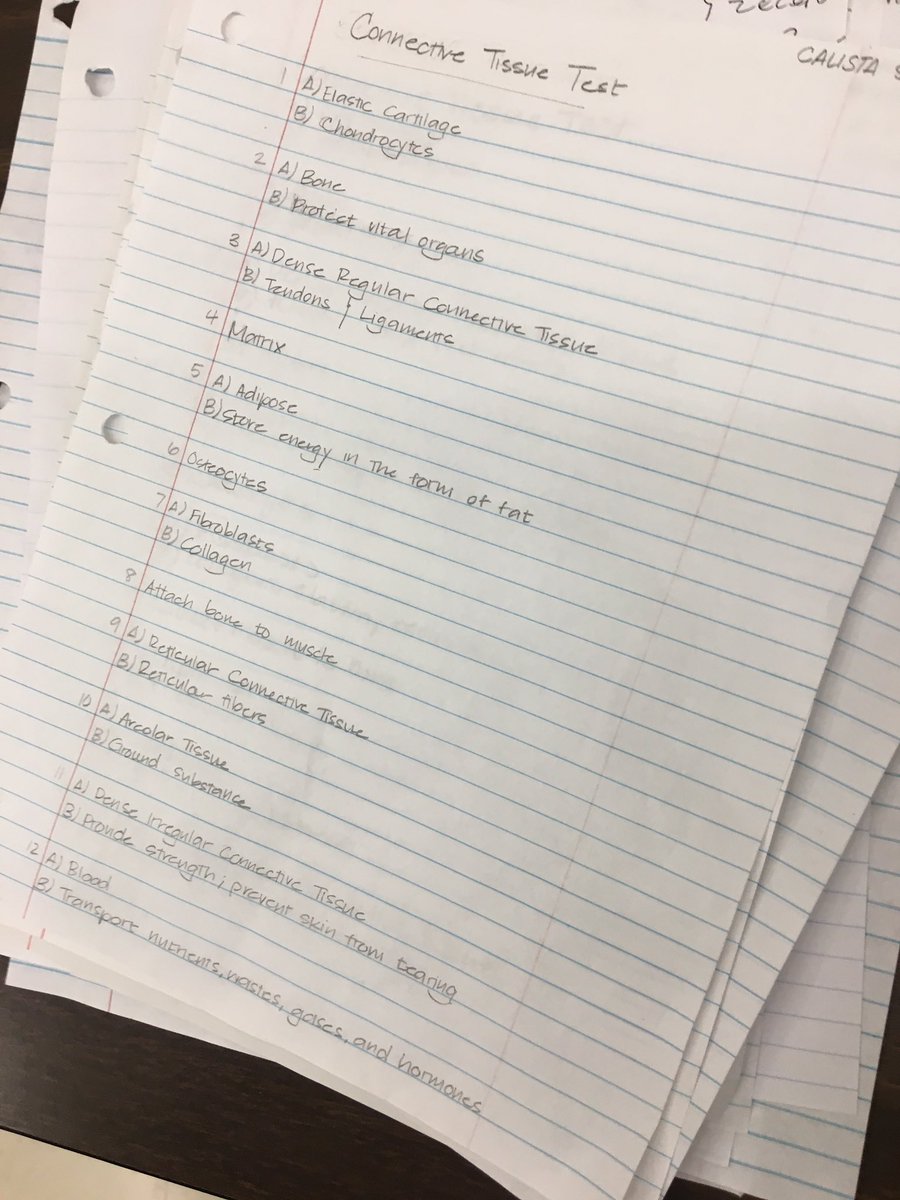 CALISTA
Connective Tissue Test
1 A) Elastic Cartilage
B) Chondrocytes
2 A) Bone
B) Protect vital organs
3 A) Dense Regular Connective Tissue
B) Tendons & Ligaments
4 Matrix
5 A) Adipose
B) Store energy in the form of fat
6 Osteocytes
7 A) Fibroblasts
B) Collagen
8 Attach bone to muscle
9 A) Reticular Connective Tissue
B) Reticular fibers
10 A) Areolar Tissue
B) Ground substance
11 A) Dense Irregular Connective Tissue
B) Provide strength; prevent skin from tearing
12 A) Blood
B) Transport nutrients, wastes, gases, and hormones